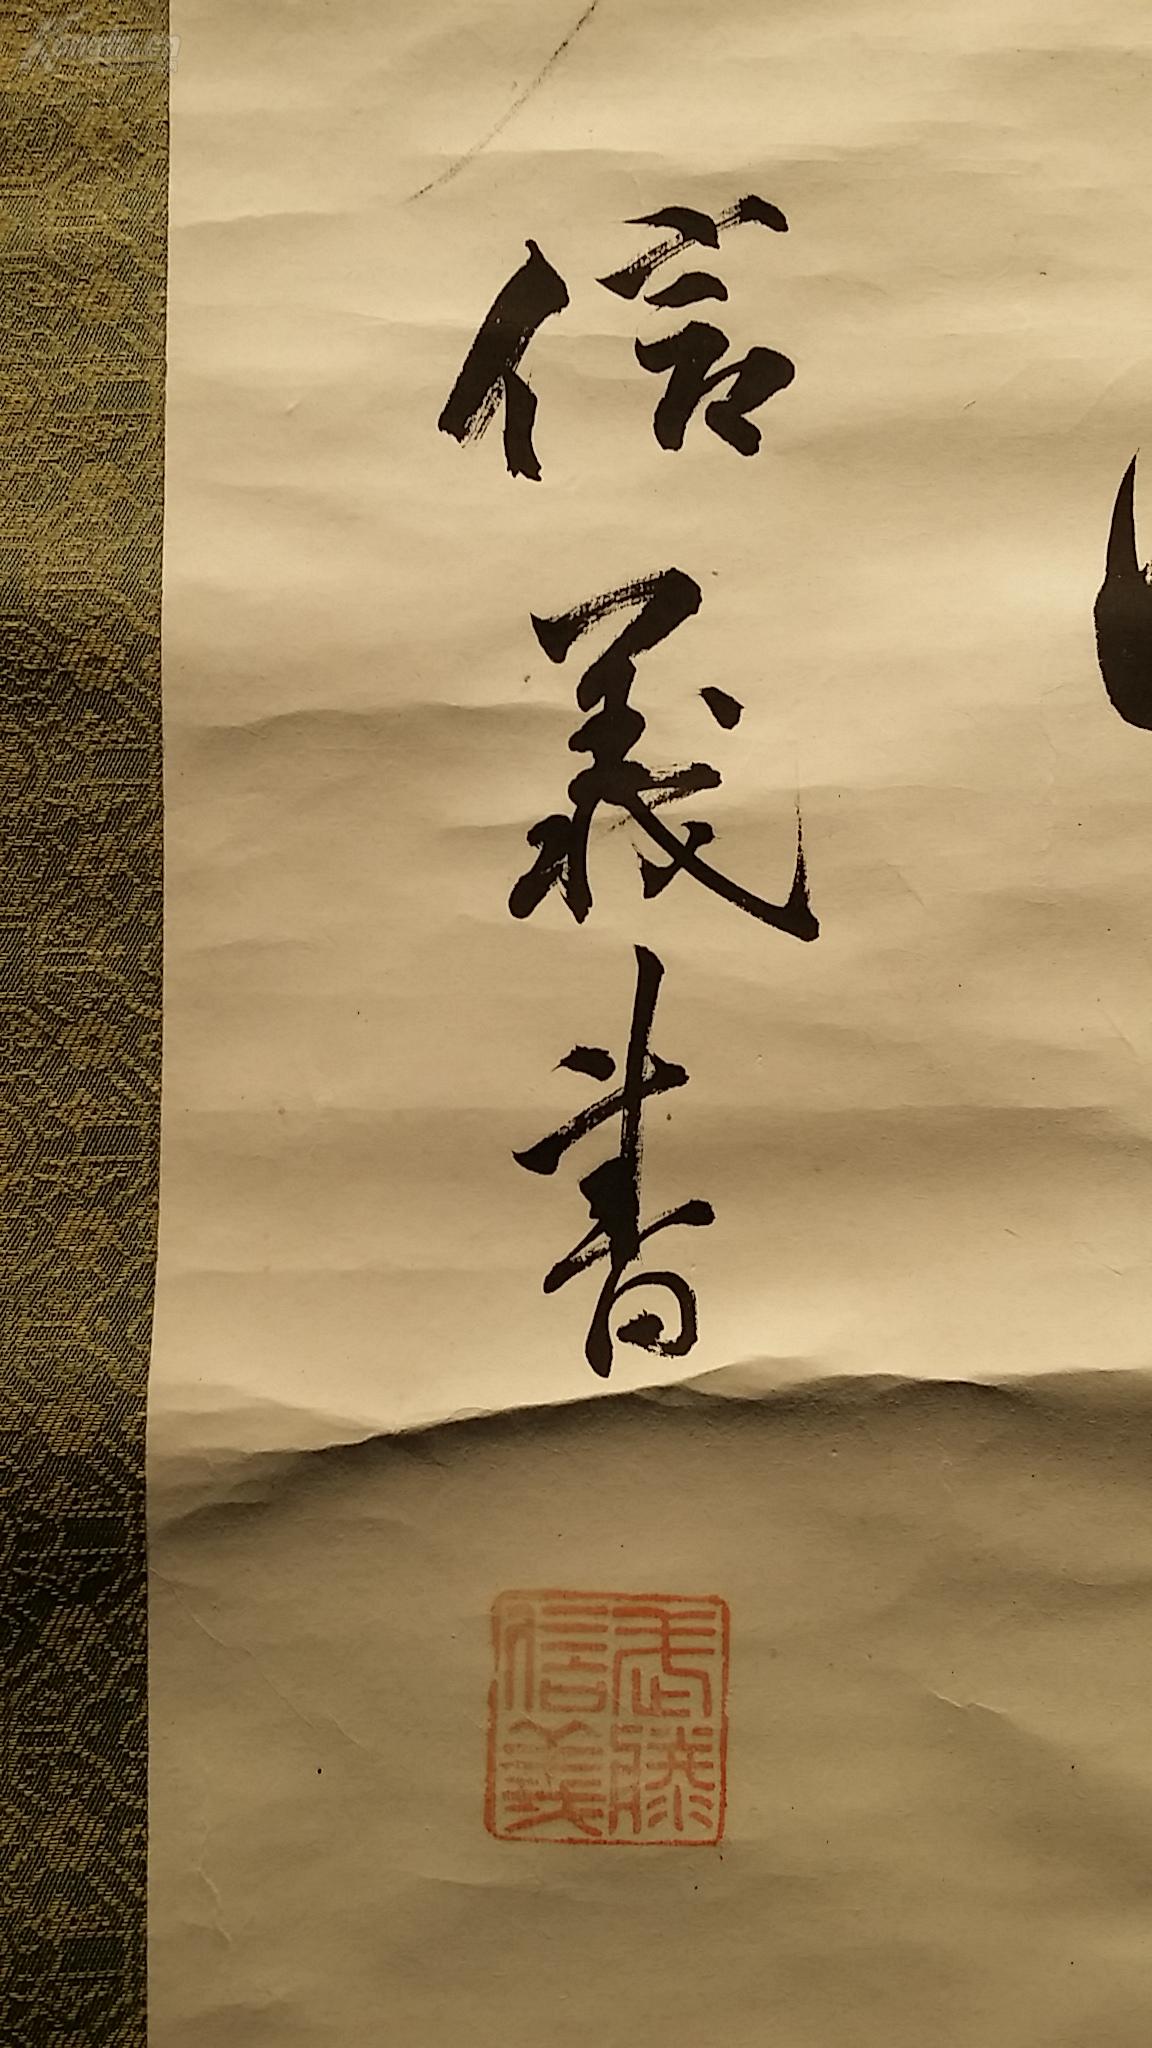 信義書
武藤
信義